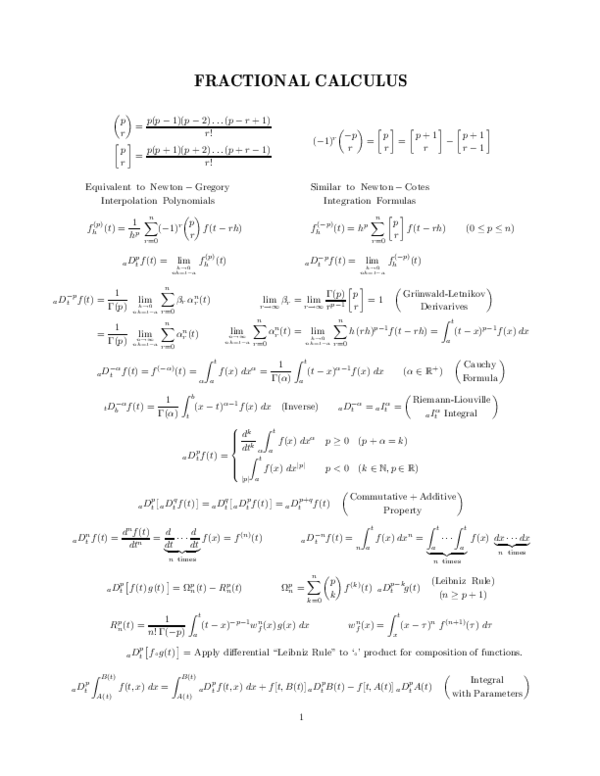 FRACTIONAL CALCULUS
(p r) = p(p − 1)(p − 2) . . . (p − r + 1) / r!
[p r] = p(p + 1)(p + 2) . . . (p + r − 1) / r!
(−1)^r (−p r) = [p r] = [p + 1 r] − [p + 1 r − 1]
Equivalent to Newton − Gregory
Interpolation Polynomials
Similar to Newton − Cotes
Integration Formulas
f_h^(p)(t) = 1/h^p ∑_{r=0}^{n} (−1)^r (p r) f(t − rh)
f_h^(−p)(t) = h^p ∑_{r=0}^{n} [p r] f(t − rh) (0 ≤ p ≤ n)
_aD_t^p f(t) = lim_{h→0, nh=t−a} f_h^(p)(t)
_aD_t^−p f(t) = lim_{h→0, nh=t−a} f_h^(−p)(t)
_aD_t^−p f(t) = 1/Γ(p) lim_{h→0, nh=t−a} ∑_{r=0}^{n} β_r α_r^n(t)
lim_{r→∞} β_r = lim_{r→∞} Γ(p)/r^{p−1} [p r] = 1 (Grünwald-Letnikov Derivatives)
= 1/Γ(p) lim_{n→∞, nh=t−a} ∑_{r=0}^{n} α_r^n(t)
lim_{n→∞, nh=t−a} ∑_{r=0}^{n} α_r^n(t) = lim_{h→0, nh=t−a} ∑_{r=0}^{n} h (rh)^{p−1} f(t − rh) = ∫_a^t (t − x)^{p−1} f(x) dx
_aD_t^−α f(t) = f^(−α)(t) = _α∫_a^t f(x) dx^α = 1/Γ(α) ∫_a^t (t − x)^{α−1} f(x) dx (α ∈ ℝ^+) (Cauchy Formula)
_tD_b^−α f(t) = 1/Γ(α) ∫_t^b (x − t)^{α−1} f(x) dx (Inverse) _aD_t^−α = _aI_t^α = (Riemann-Liouville _aI_t^α Integral)
_aD_t^p f(t) = { d^k/dt^k _α∫_a^t f(x) dx^α p ≥ 0 (p + α = k)
_|p|∫_a^t f(x) dx^|p| p < 0 (k ∈ ℕ, p ∈ ℝ)
_aD_t^p[_aD_t^q f(t)] = _aD_t^q[_aD_t^p f(t)] = _aD_t^{p+q} f(t) (Commutative + Additive Property)
_aD_t^n f(t) = d^n f(t)/dt^n = d/dt · · · d/dt (n times) f(x) = f^(n)(t)
_aD_t^−n f(t) = _n∫_a^t f(x) dx^n = ∫_a^t · · · ∫_a^t (n times) f(x) dx · · · dx (n times)
_aD_t^p[f(t) g(t)] = Ω_n^p(t) − R_n^p(t)
Ω_n^p = ∑_{k=0}^{n} (p k) f^(k)(t) _aD_t^{p−k} g(t) (Leibniz Rule) (n ≥ p + 1)
R_n^p(t) = 1/(n! Γ(−p)) ∫_a^t (t − x)^{−p−1} w_f^n(x) g(x) dx
w_f^n(x) = ∫_x^t (x − τ)^n f^(n+1)(τ) dτ
_aD_t^p[f∘g(t)] = Apply differential “Leibniz Rule” to ‘∘’ product for composition of functions.
_aD_t^p ∫_{A(t)}^{B(t)} f(t, x) dx = ∫_{A(t)}^{B(t)} _aD_t^p f(t, x) dx + f[t, B(t)] _aD_t^p B(t) − f[t, A(t)] _aD_t^p A(t) (Integral with Parameters)
1